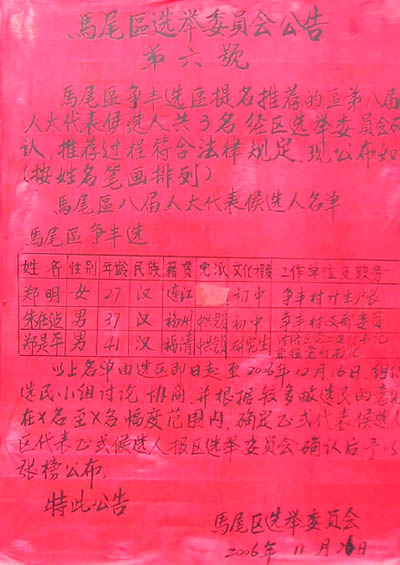 馬尾區选举委員会公告
第六號
馬尾區争丰选區提名推荐的區第八届
人大代表候选人共3名,经区选举委員会确
认,推荐过程符合法律规定.现公布如
(按姓名笔画排列)
馬尾區八届人大代表候选人名单
馬尾區争丰选
姓名 性别 年龄 民族 籍贯 党派 文化程度 工作单位及职务
郑明 女 27 汉 连江 初中 争丰村计生
朱 男 37 汉 福州 中共党员 初中 争丰村支部委员
郑是平 男 41 汉 福清 中共党员 研究生
以上名单由选区即日起至2006年12月16日,组织
选民小组讨论、协商,并根据较多数选民的意见
在X名至X名幅度范围内,确定正式代表候选人
区代表正式候选人报区选举委員会确认后,予以
张榜公布.
特此公告
馬尾区选举委員会
2006年11月26日